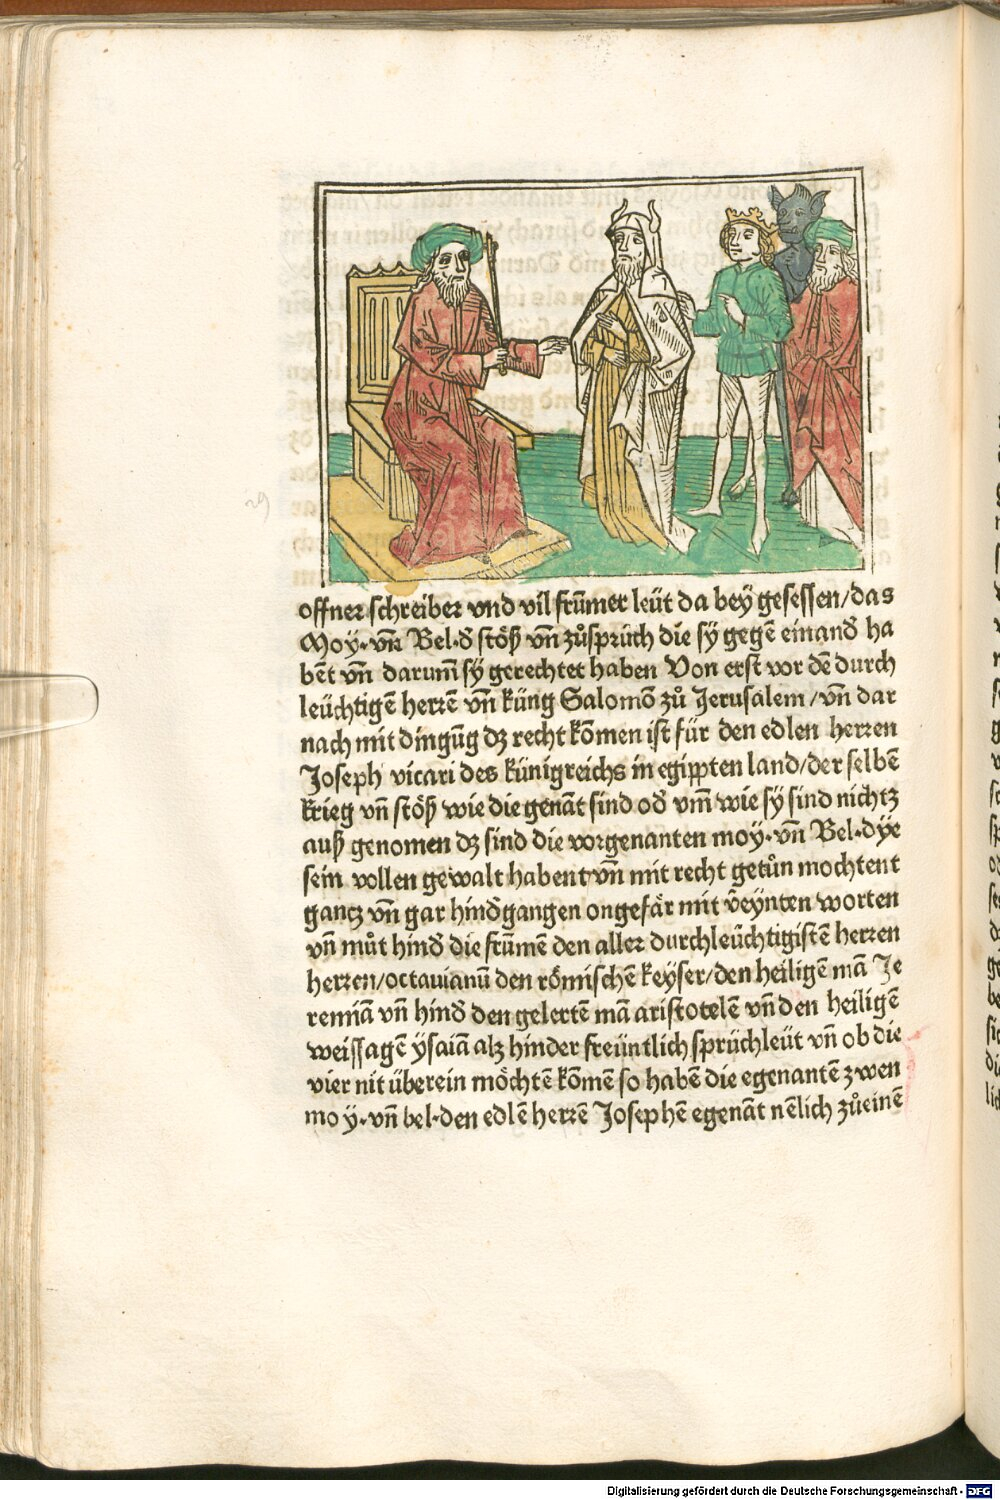 offner schreiber vnd vil frum̄er leüt da bey gesessen/das
Moÿ· vn̄ Bel·d̕ stöß vn̄ zůsprüch die sÿ gegē einand̕ ha
bēt vn̄ darum̄ sÿ gerechtet haben Von erst vor dē durch
leüchtigē herrē vn̄ küng Salomō zů Jerusalem/vn̄ dar
nach mit dinguͤg dz recht kōmen ist für den edlen herren
Joseph vicari des künigreichs in egippten land/der selbē
krieg vn̄ stöß wie die genāt sind od̕ vm̄ wie sÿ sind nichtz
auß genomen dz sind die vorgenanten moÿ· vn̄ Bel·dÿe
sein vollen gewalt habent vn̄ mit recht getůn mochtent
gantz vn̄ gar hind̕gangen ongefär mit v̄eÿnten worten
vn̄ můt hind̕ die frūmē den aller durchleüchtigistē herren
herren/octauianū den römischē keÿser/den heiligē mā Je
remiā vn̄ hind̕ den gelertē mā aristotelē vn̄ den heiligē
weissagē ÿsaiā alz hinder freüntlich sprüchleüt vn̄ ob die
vier nit überein möchtē kōmē so habē die egenantē zwen
moÿ· vn̄ bel·den edlē herrē Josephē egenāt nēlich zůeinē
29
Digitalisierung gefördert durch die Deutsche Forschungsgemeinschaft - DFG